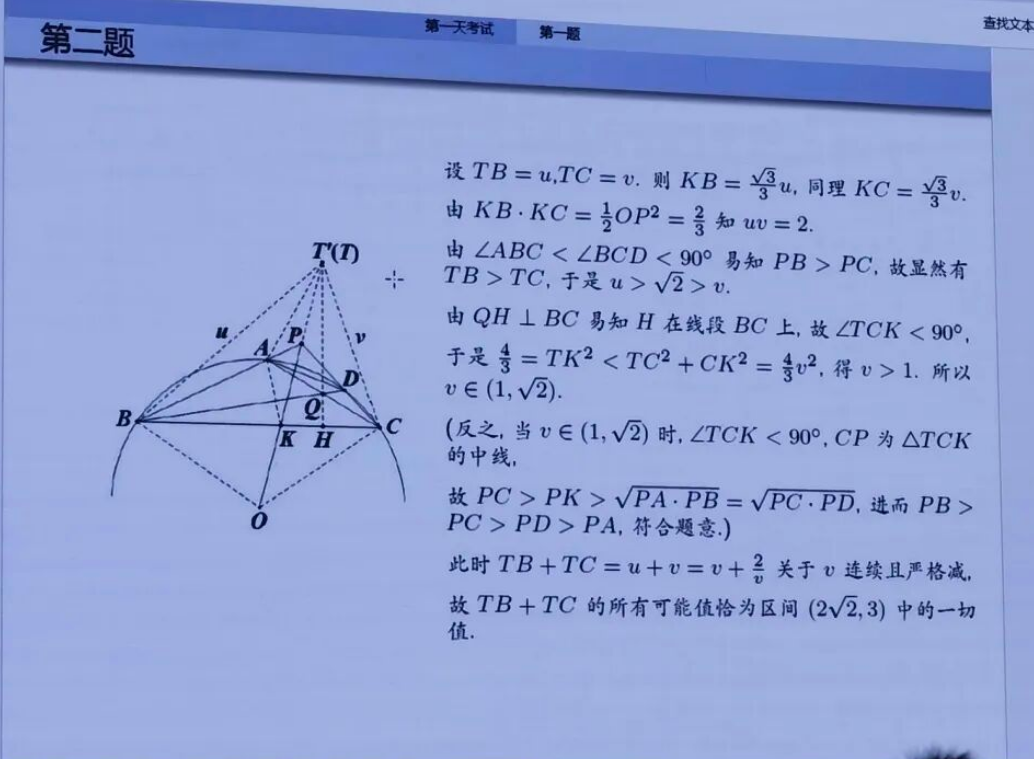 第一天考试 第一题 查找文本
第二题
设 TB = u,TC = v. 则 KB = \frac{\sqrt{3}}{3}u, 同理 KC = \frac{\sqrt{3}}{3}v.
由 KB · KC = \frac{1}{2}OP² = \frac{2}{3} 知 uv = 2.
由 ∠ABC < ∠BCD < 90° 易知 PB > PC, 故显然有
TB > TC, 于是 u > √2 > v.
由 QH ⊥ BC 易知 H 在线段 BC 上, 故 ∠TCK < 90°,
于是 \frac{4}{3} = TK² < TC² + CK² = \frac{4}{3}v², 得 v > 1. 所以
v ∈ (1, √2).
(反之, 当 v ∈ (1, √2) 时, ∠TCK < 90°, CP 为 △TCK
的中线,
故 PC > PK > \sqrt{PA · PB} = \sqrt{PC · PD}, 进而 PB >
PC > PD > PA, 符合题意.)
此时 TB + TC = u + v = v + \frac{2}{v} 关于 v 连续且严格减,
故 TB + TC 的所有可能值恰为区间 (2√2, 3) 中的一切
值.
T'(T)
u
P
v
A
D
Q
B
K
H
C
O